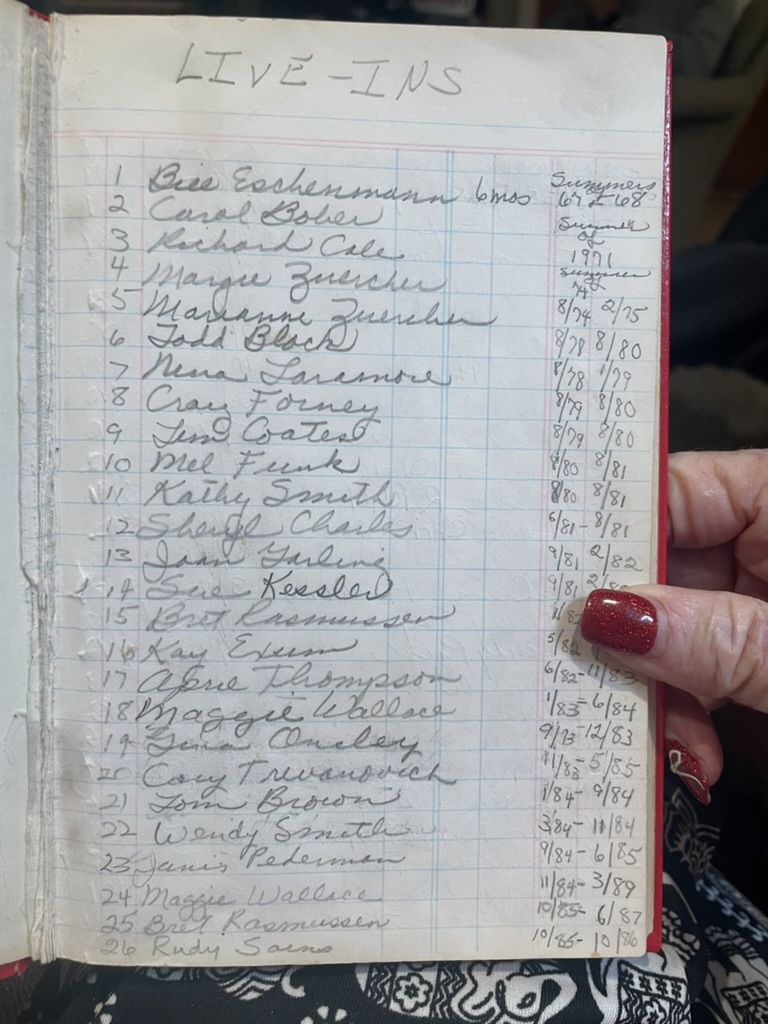 LIVE-INS
1 Bill Eschenmann 6mos Summers 67 & 68
2 Carol Bober Summer of 1971
3 Richard Cole Summer 74
4 Margie Zuercher
5 Marianne Zuercher 8/74 2/75
6 Todd Block 8/78 8/80
7 Nena Laramore 8/78 1/79
8 Craig Forney 8/79 8/80
9 Jim Coates 8/79 8/80
10 Mel Funk 8/80 8/81
11 Kathy Smith 8/80 8/81
12 Sheryl Charles 6/81 - 8/81
13 Joan Yarling 9/81 2/82
14 Sue Kessler 9/81
15 Bret Rasmussen
16 Kay Exum 5/82
17 April Thompson 6/82 - 11/83
18 Maggie Wallace 1/83 - 6/84
19 Tina Oncley 9/73 - 12/83
20 Cory Trevanovich 11/83 - 5/85
21 Tom Brown 1/84 - 9/84
22 Wendy Smith 3/84 - 11/84
23 Janis Pederman 9/84 - 6/85
24 Maggie Wallace 11/84 - 3/89
25 Bret Rasmussen 10/85 - 6/87
26 Rudy Sains 10/85 - 10/86